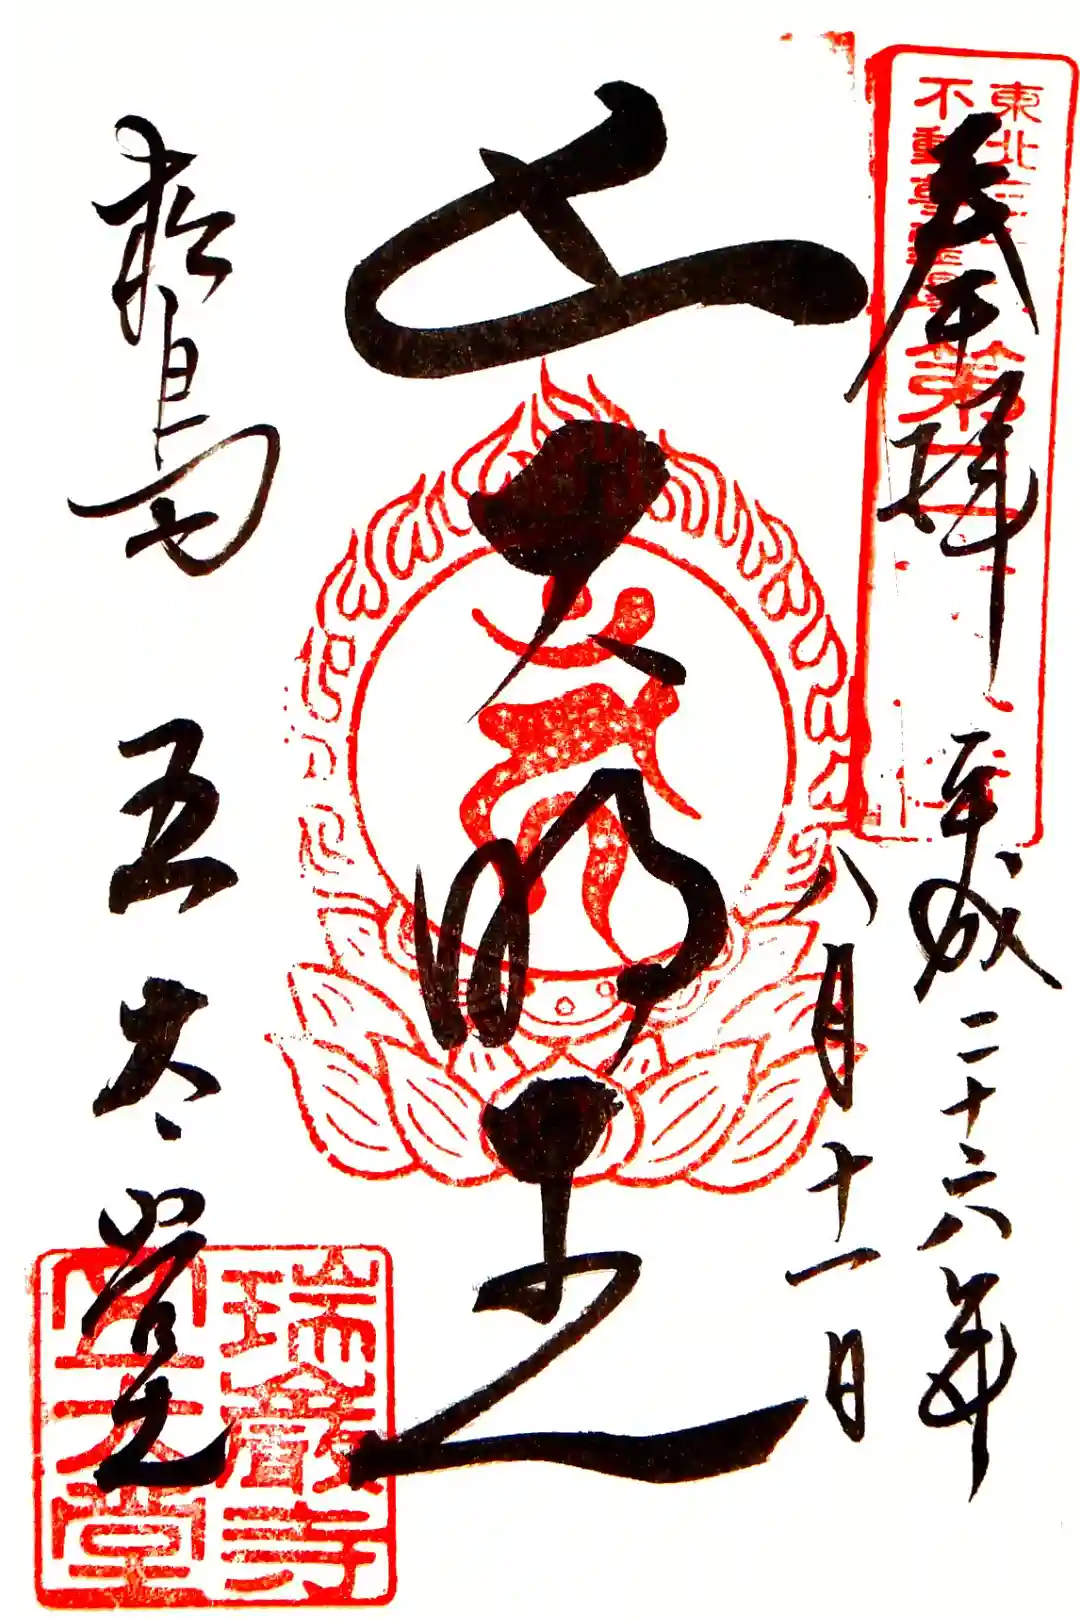 東北三十六
不動尊霊場
第二
奉拝
平成二十六年
八月十一日
五大明王
松島
五太堂
瑞巖寺
五大堂